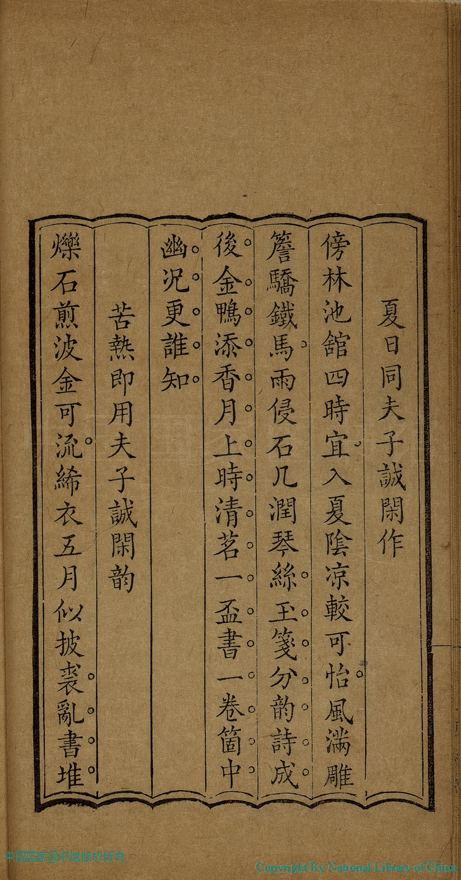 夏日同夫子誠閑作
傍林池舘四時宜入夏陰凉較可怡風滿雕
簷驕鐵馬雨侵石几潤琴絲玉箋分韵詩成
後金鴨添香月上時清茗一盃書一卷箇中
幽况更誰知
苦熱即用夫子誠閑韵
爍石煎波金可流絺衣五月似披裘亂書堆
Copyright by National Library of China